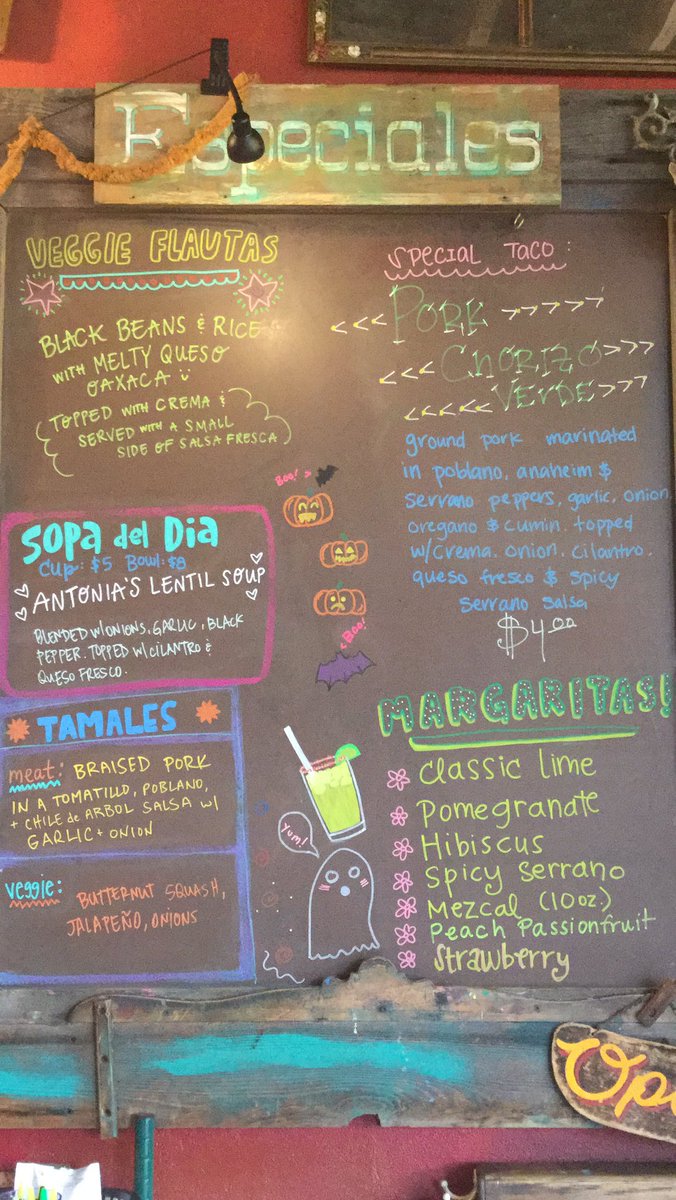 Especiales
VEGGIE FLAUTAS
BLACK BEANS & RICE
WITH MELTY QUESO
OAXACA
TOPPED WITH CREMA &
SERVED WITH A SMALL
SIDE OF SALSA FRESCA
SPECIAL TACO:
<<< PORK >>>>>
<<< CHORIZO >>>
<<<<< VERDE >>>
ground pork marinated
in poblano, anaheim &
serrano peppers, garlic, onion,
oregano & cumin. topped
w/crema. onion. cilantro.
queso fresco & spicy
serrano salsa
$4.00
Boo!
SOPA del Dia
Cup: $5 Bowl: $8
ANTONIA'S LENTIL SOUP
BLENDED W/ONIONS, GARLIC, BLACK
PEPPER. TOPPED W/CILANTRO &
QUESO FRESCO.
Boo!
TAMALES
meat: BRAISED PORK
IN A TOMATILLO, POBLANO,
+ CHILE de ARBOL SALSA W/
GARLIC + ONION
veggie: BUTTERNUT SQUASH,
JALAPEÑO, ONIONS
Yum!
MARGARITAS!
Classic lime
Pomegrandte
Hibiscus
Spicy Serrano
Mezcal (10oz)
Peach Passionfruit
Strawberry